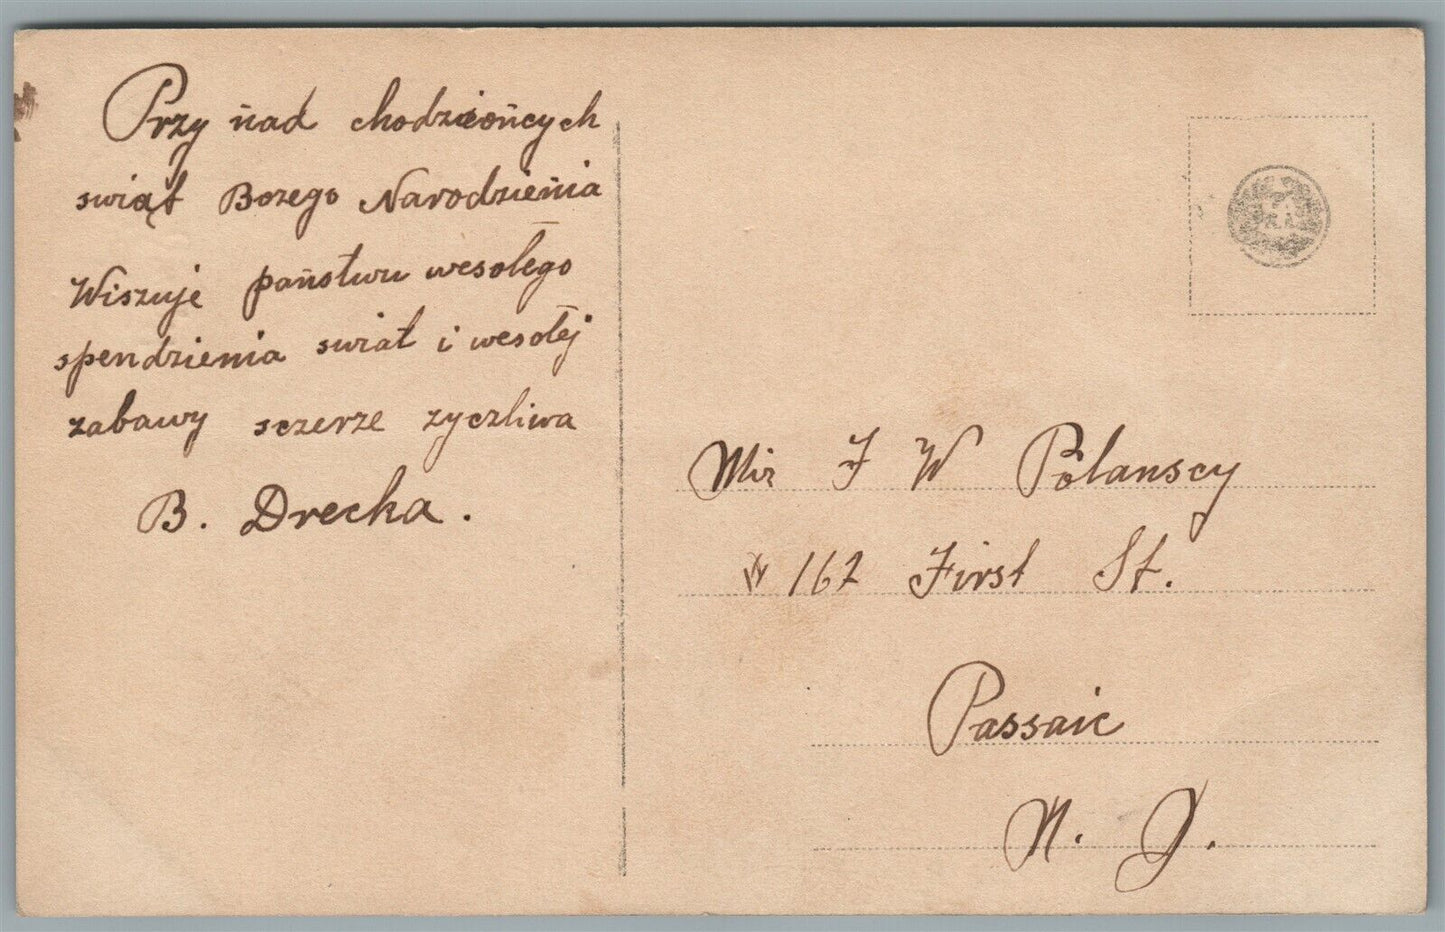 Przy nad chodziońcych
swiąt Bozego Narodzienia
Wiszuje państwu wesołego
spendzienia swiat i wesołej
zabawy sczerze zyczliwa
B. Drecka.
Mir J W Polanscy
162 First St.
Passaic
N. J.